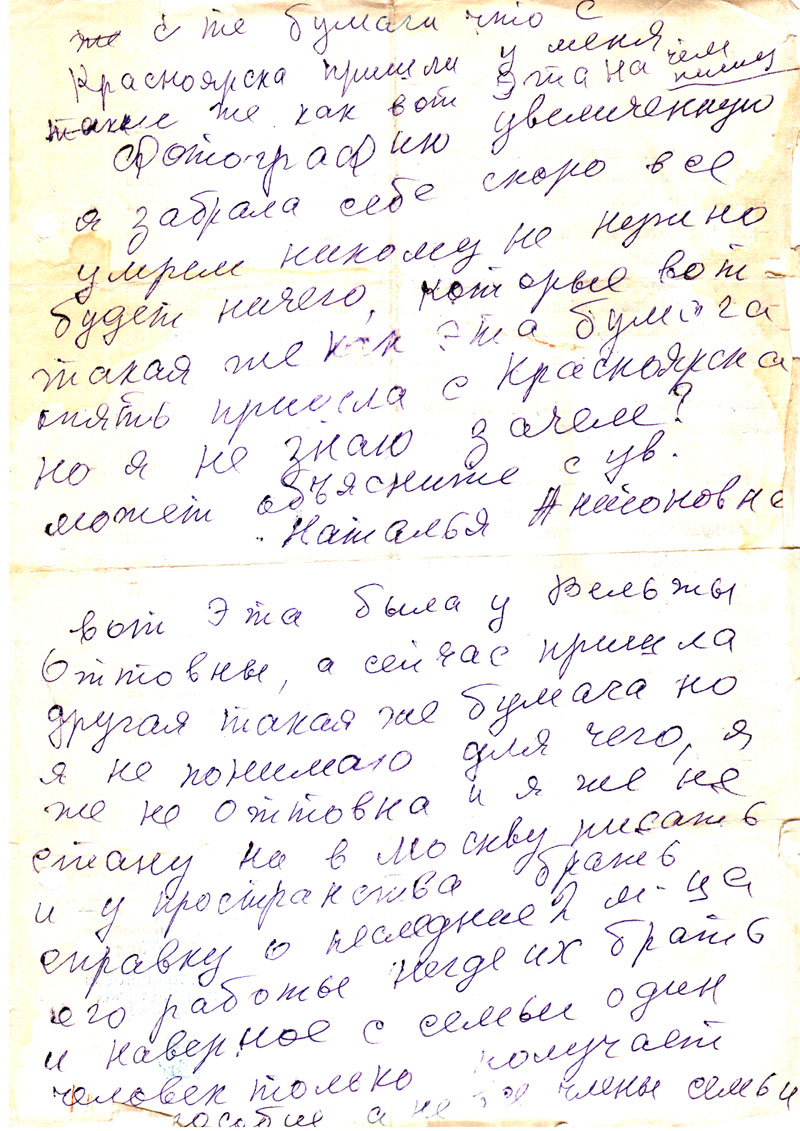 же с те бумаги что с
Красноярска пришли у меня
такие же как вот эта на чем
пишу
Фотографию увеличенную
я забрала себе скоро все
умрем никому не нужно
будет ничего, которые вот
такая же как эта бумага
опять пришла с Красноярска
но я не знаю зачем?
может объясните с ув.
Наталья Антоновна
вот эта была у Вельжы
Оттовны, а сейчас пришла
другая такая же бумага но
я не понимаю для чего, я
же не Оттовна и я же не
стану на в Москву писать
и у пространства брать
справку о последние 2 м-ца
его работы негде их брать
и наверное с семьи один
человек только получает
пособие а не все члены семьи